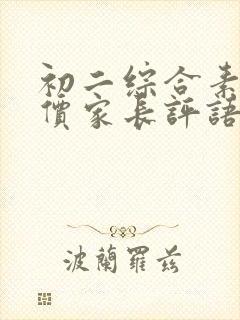 初二綜合素
價家長評語
波蘭羅茲